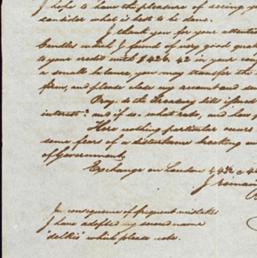 I hope to have the pleasure of seeing you
consider what is best to be done.
I thank you for your attention
Candles which I found of very good quality
to your credit with $426.42 in your
a small balance, you may transfer the
firm, and please close my account and
Pray, do the Treasury bills
interest? and if so, what rate, and
Here nothing particular occurs
some fear of a disturbance breaking
of Government
Exchange on London
I remain
In consequence of frequent mistakes
I have adopted my second name
which please note.